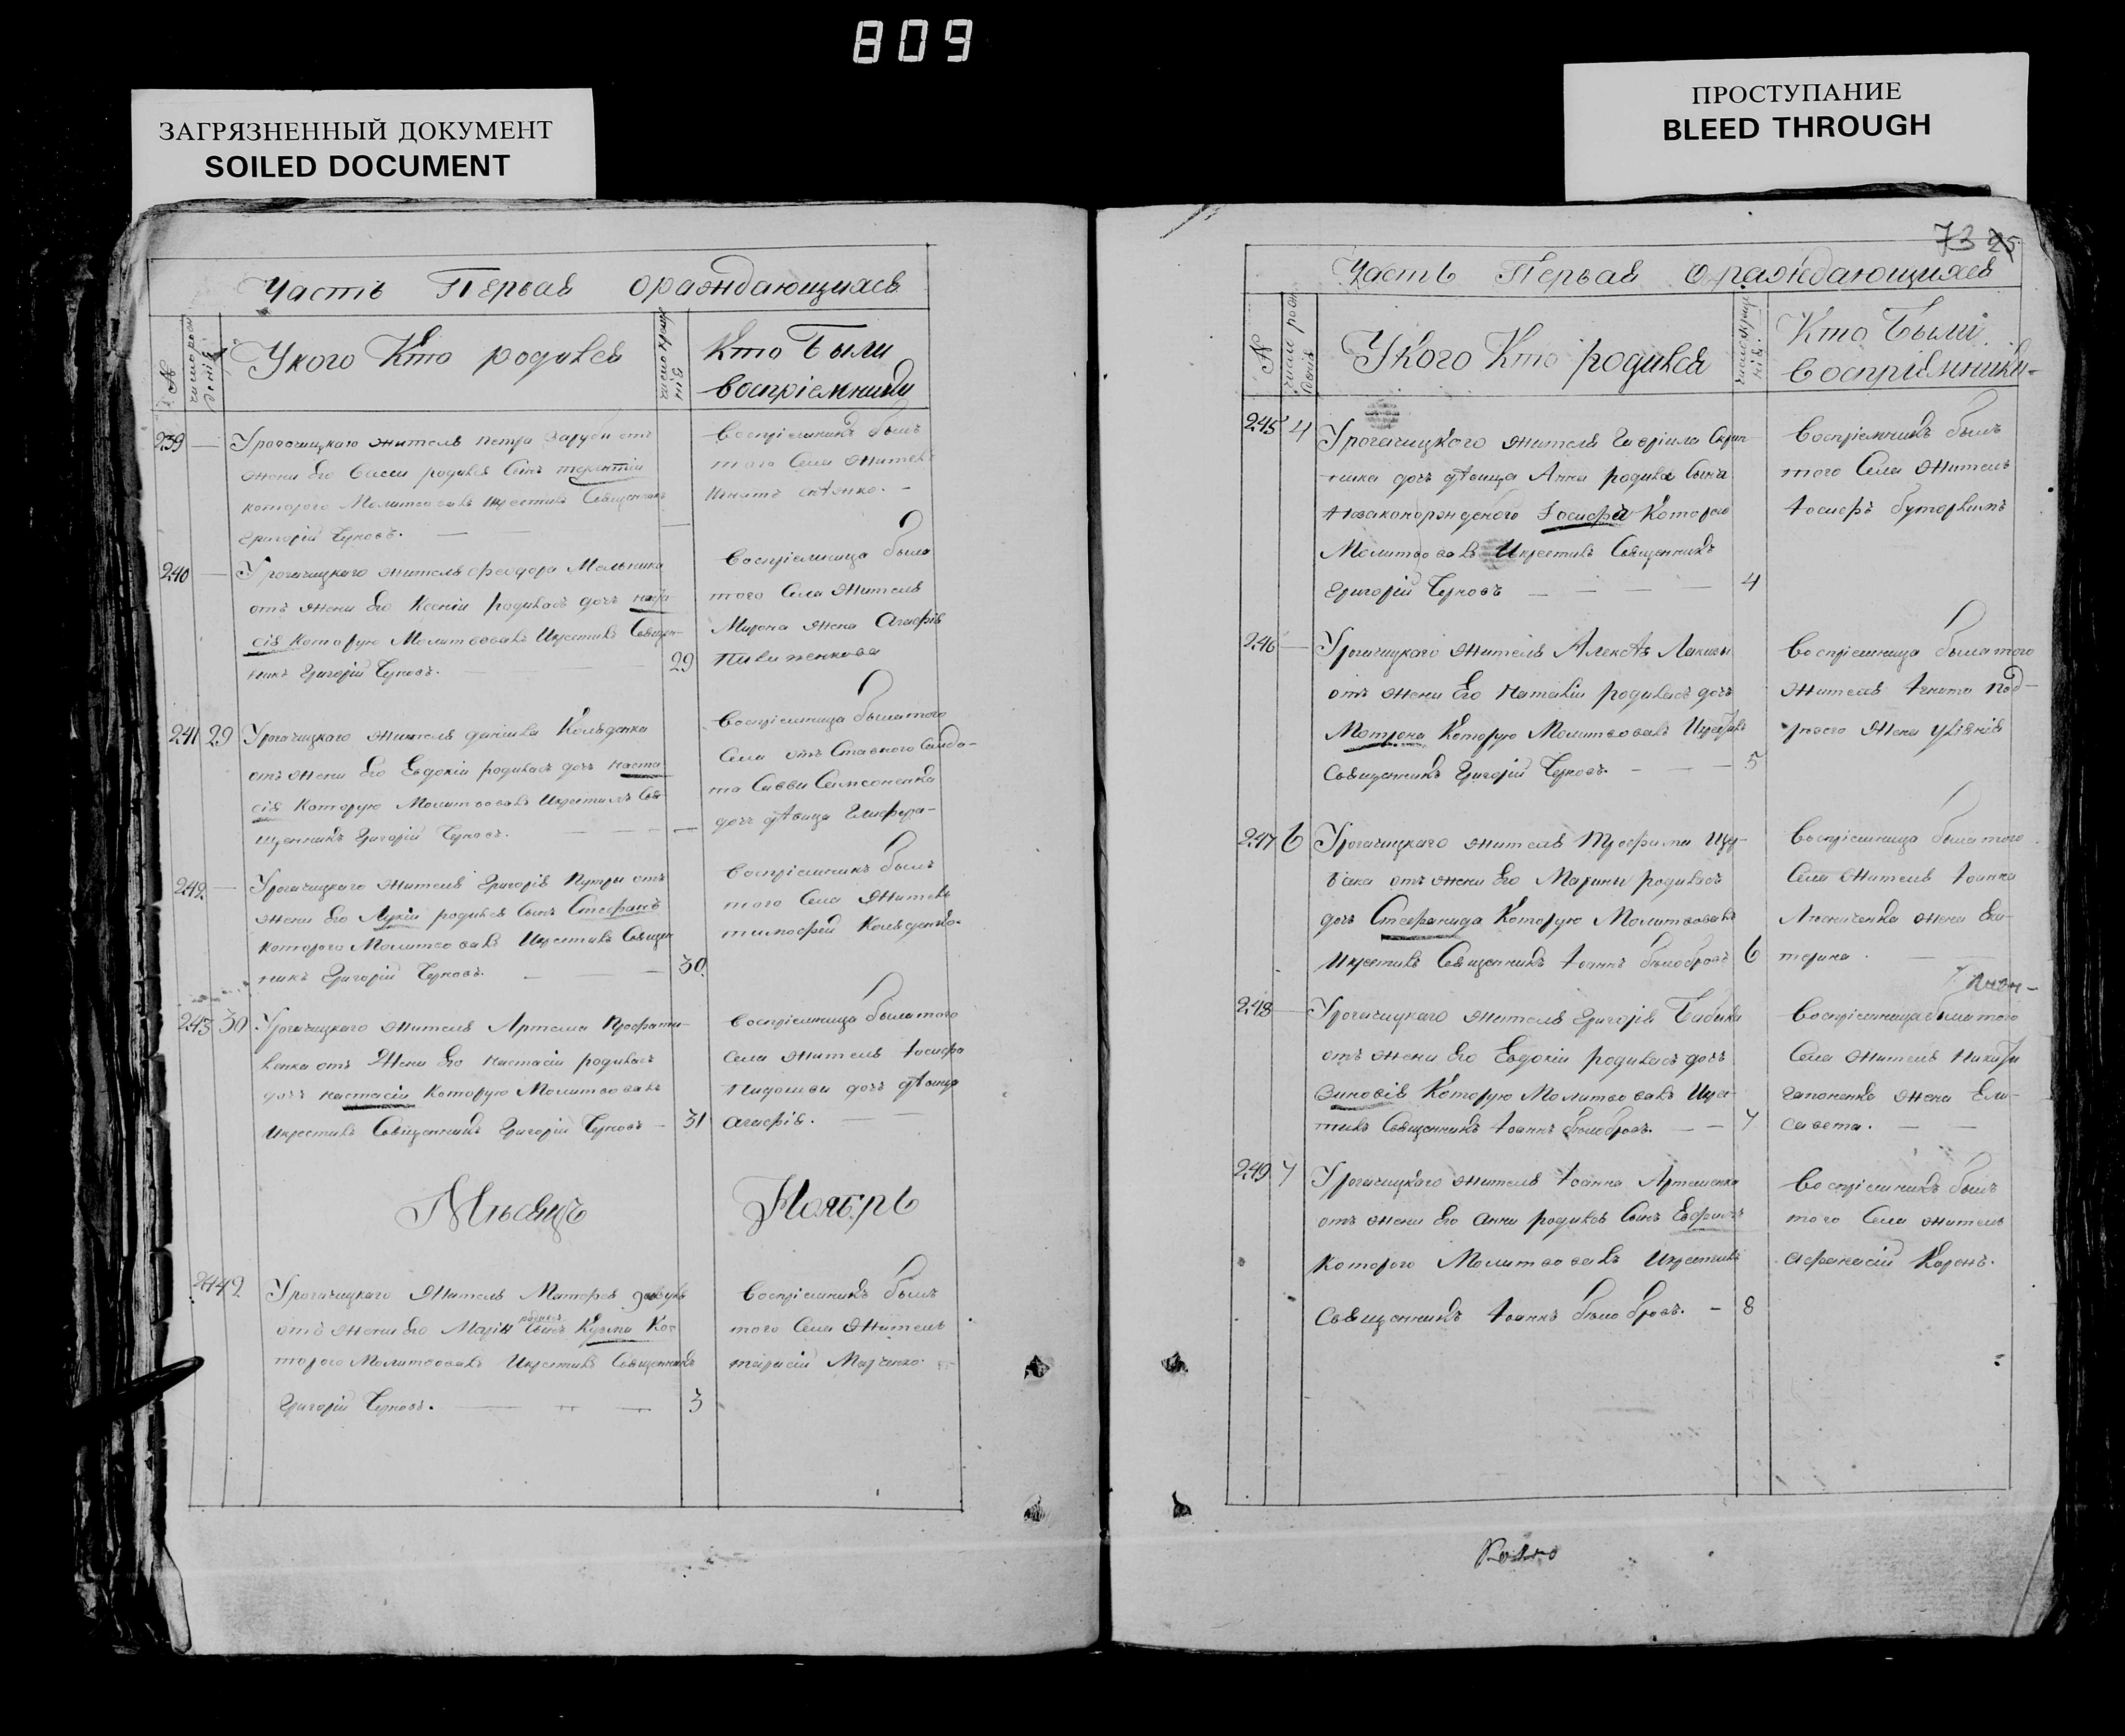 809
ЗАГРЯЗНЕННЫЙ ДОКУМЕНТ
SOILED DOCUMENT
ПРОСТУПАНИЕ
BLEED THROUGH
Часть Первая ораждающихся
№
Укого Кто родился
Кто Были
воспріемники
239 — Урогачицкаго жителя петра Заруби отъ
жени его Васси родился Синъ терентій
которого Молитвовалъ Икрестилъ Священникъ
Григорій Черновъ. —
воспріемникъ былъ
того Села житель
Игнатъ —
240 — Урогачицкаго жителя феодора Мельника
отъ жени его Ксеніи родилась дочъ наста-
сія Которую Молитвовалъ Икрестилъ Священ-
никъ Григорій Черновъ. — 29
воспріемница была
того Села жителя
Мирона жена Агафія
241 29 Урогачицкаго жителя даніила Кольденка
отъ жени его Евдокіи родилась дочъ наста-
сія Которую Молитвовалъ Икрестилъ Свя-
щенникъ Григорій Черновъ. — — —
воспріемница была того
Села отъ Ставного Салда-
та Савви Самсоненка
дочъ дѣвица Гликерія —
242 — Урогачицкаго жителя Григорія Путри отъ
жени его Лукіи родился Синъ Стефанъ
которого Молитвовалъ Икрестилъ Священ
никъ Григорій Черновъ. — — 30.
воспріемникъ былъ
того Села житель
тимофей Кольденко.
243 30 Урогачицкаго жителя Артема Профати-
ленка отъ Жени его настасіи родилась
дочъ настасія Которую Молитвовалъ
Икрестилъ Священникъ Григорій Черновъ — 31
воспріемница была того
Села жителя Іосифа
Пидошви дочъ дѣвица
агафія. —
Мѣсяцъ Ноябрь
244 2 Урогачицкаго жителя Матфея
отъ жени его Маріи родился Синъ Кузма Кос
торого Молитвовалъ Икрестилъ Священникъ
Григорій Черновъ. — — — 3
воспріемникъ былъ
того Села житель
тарасій Марченко.
73 25
Часть Первая ораждающихся
№
Укого Кто родился
Кто Были
воспріемники
245 4 Урогачицкого жителя Гавріила Скрип-
ника дочъ дѣвица Анна родила Сына
Незаконорэжденого Іосифа Которого
Молитвовалъ Икрестилъ Священникъ
Григорій Черновъ — — — — 4
воспріемникъ былъ
того Села житель
Іосифъ
246 — Урогачицкаго жителя Алексѣя
отъ жени его Наталіи родилась дочъ
Мотрона Которую Молитвовалъ Икрестилъ
Священникъ Григорій Черновъ. — — — 5
воспріемница была того
жителя Игната Под-
жена уліянія
247 6 Урогачицкаго жителя Трофима Щер-
бака отъ жени его Марины родилась
дочъ Стефанида Которую Молитвовалъ
Икрестилъ Священникъ Іоаннъ бѣлобровъ 6
воспріемница была того
Села жителя Іоанна
Лисниченка жена Ека-
терина. — —
248 — Урогачицкаго жителя Григорія Бабика
отъ жени его Евдокіи родилась дочъ
Зиновія Которую Молитвовалъ Икрес-
тилъ Священникъ Іоаннъ бѣлобровъ. — — 7
воспріемница была того
Села жителя Никити
гапоненка жена Ели-
савета. — —
249 7 Урогачицкаго жителя Іоанна Артеменка
отъ жени его анни родился Синъ Евфимъ
которого Молитвовалъ Икрестилъ
Священникъ Іоаннъ бѣлобровъ. — 8
воспріемникъ былъ
того Села житель
афанасій Корень.